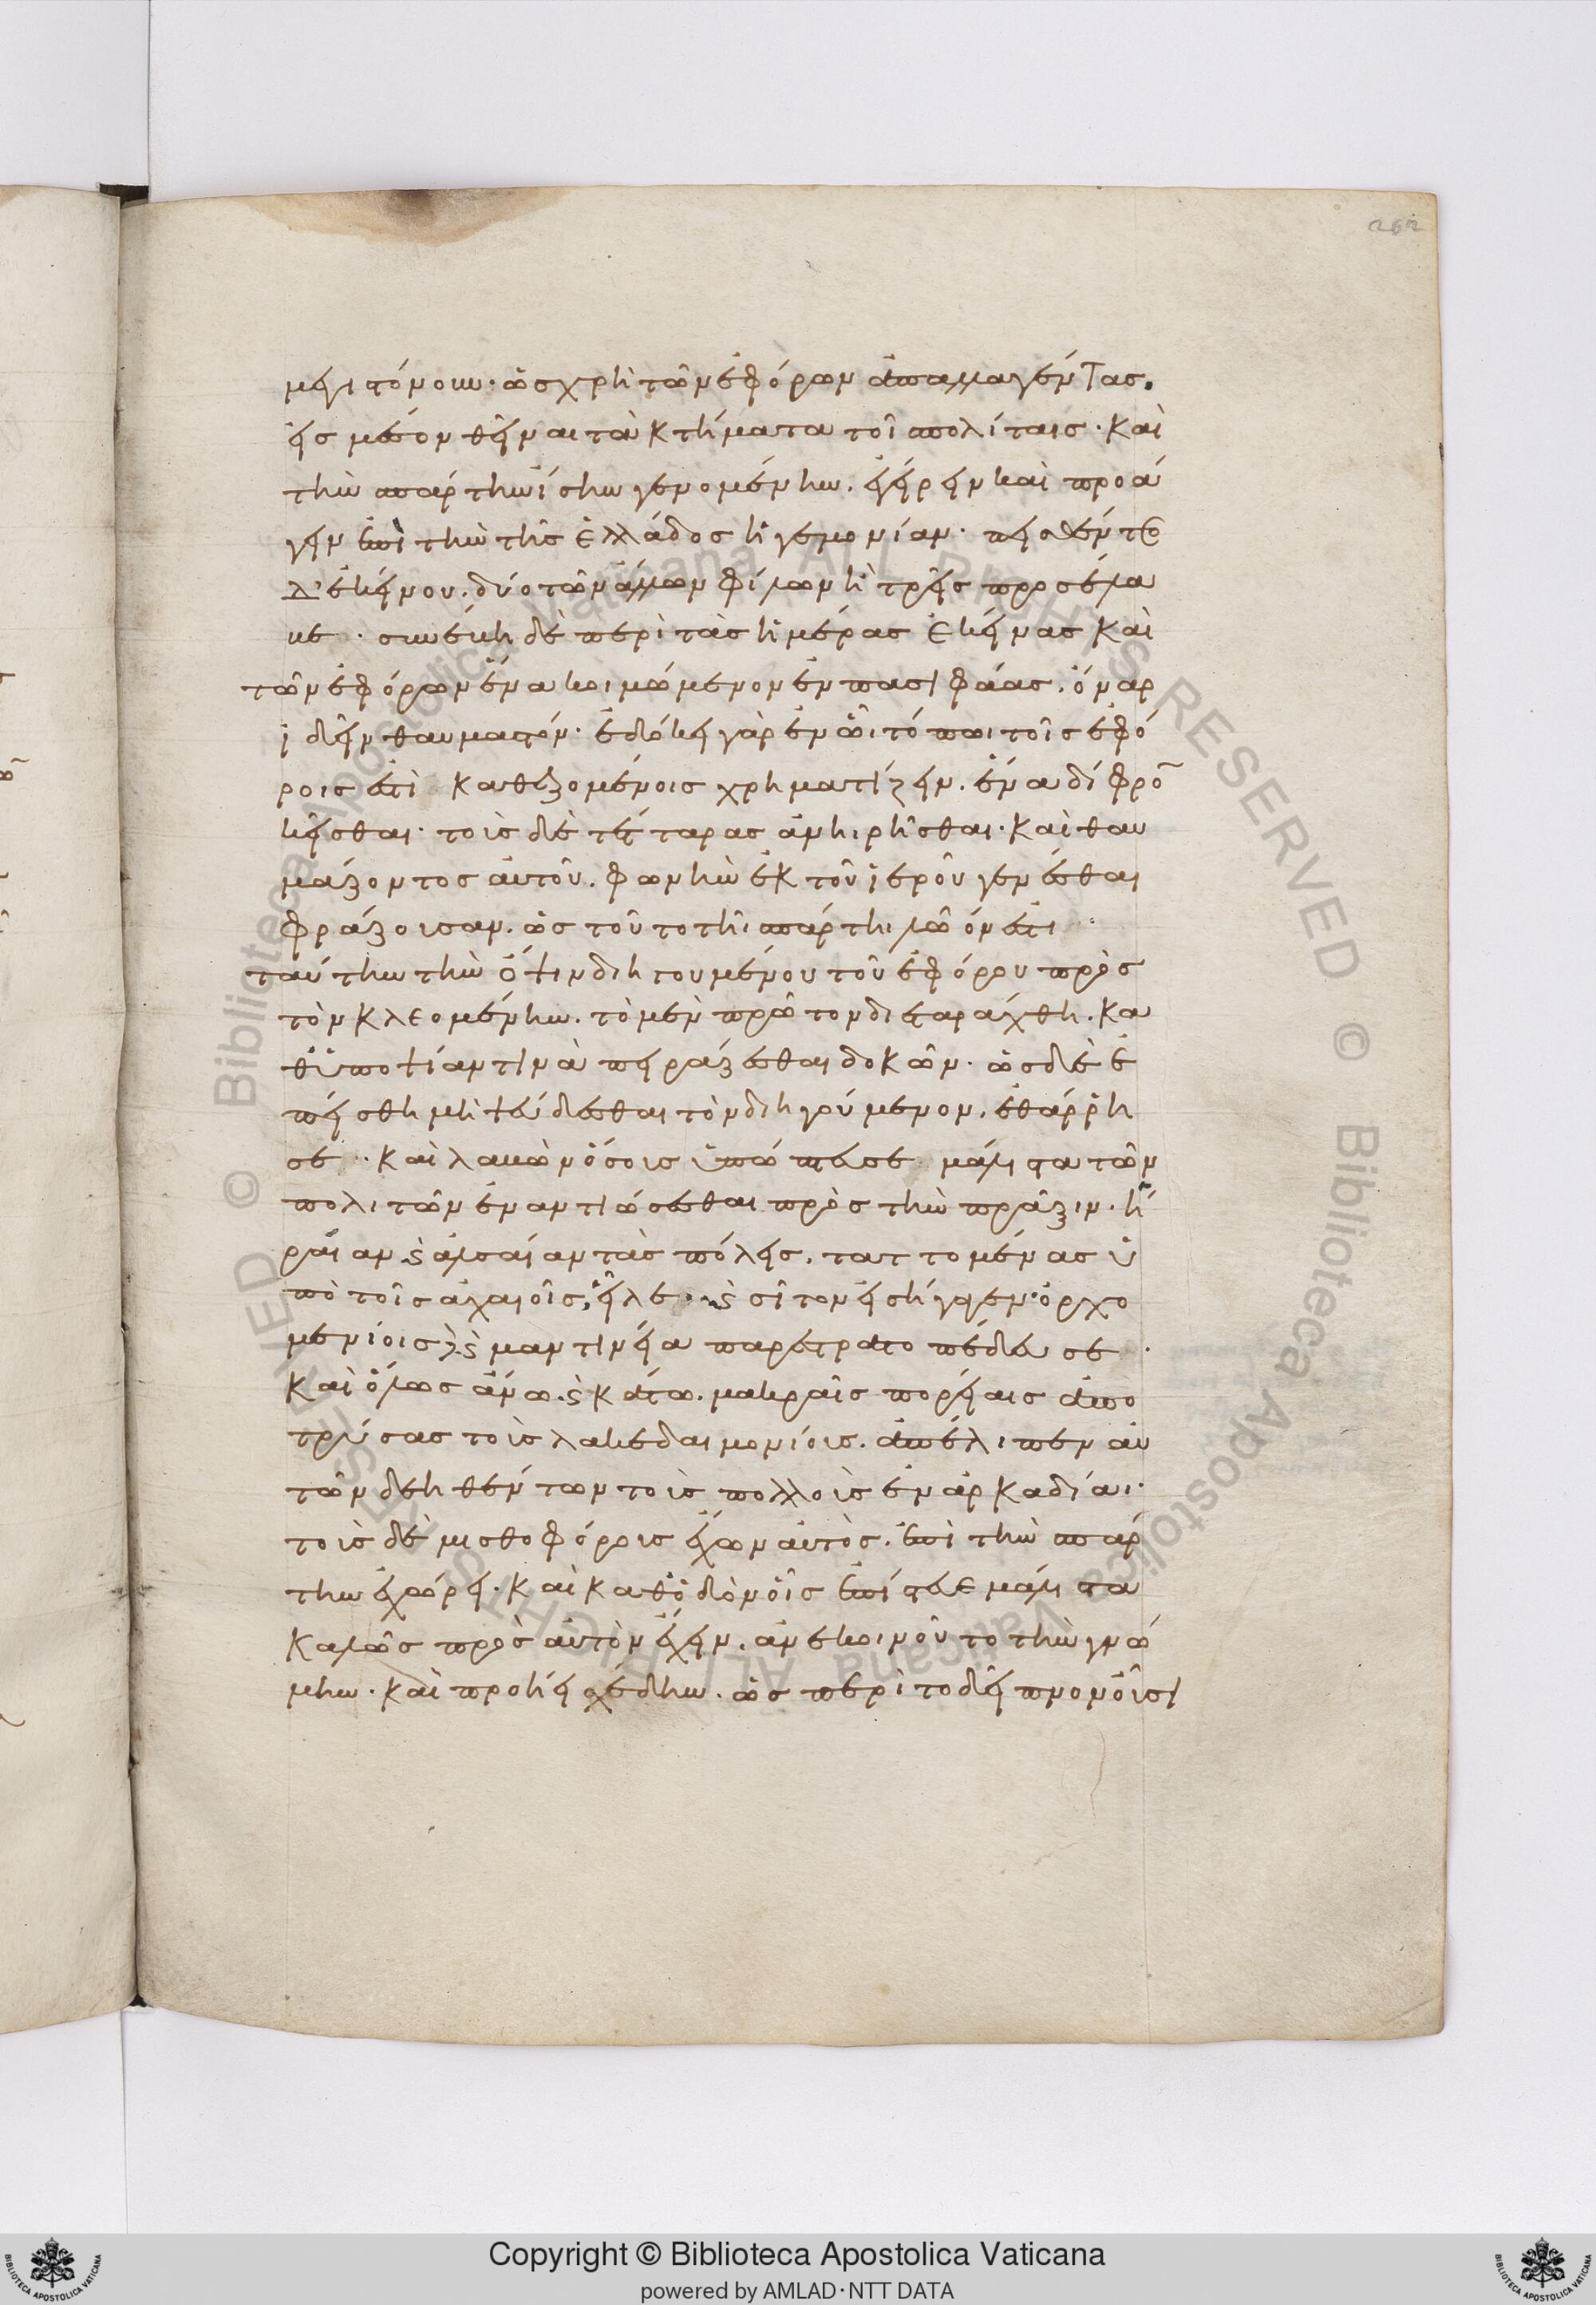 262
μεγιστόνουν· ὡς χρὴ τῶν ἐφόρων ἀπαλλαγέντας.
εἰς μέσον θεῖναι τὰ κτήματα τοῖς πολίταις· καὶ
τὴν σπάρτην ἴσην γενομένην. ἐγείρειν καὶ προά
γειν ἐπὶ τὴν τῆς ἑλλάδος ἡγεμονίαν· πεισθέντος
δ' ἐκείνου. δύο τῶν ἄλλων φίλων ἢ τρεῖς προσέλα
βε. συνέβη δὲ περὶ τὰς ἡμέρας ἐκείνας καὶ
τῶν ἐφόρων ἕνα κοιμώμενον ἐν πασιφάας. ὄναρ
ἰδεῖν θαυμαστόν· ἐδόκει γὰρ ἐν ὧι τόπωι τοῖς ἐφό
ροις ἔτι καθεζομένοις χρηματίζειν. ἕνα δίφρον
κεῖσθαι· τοὺς δὲ τέτταρας ἀνηιρῆσθαι· καὶ θαυ
μάζοντος αὐτοῦ. φωνὴν ἐκ τοῦ ἱεροῦ γενέσθαι
φράζουσαν. ὡς τοῦτο τῆι σπάρτηι λῶόν ἐστι
ταύτην τὴν ὄψιν διηγουμένου τοῦ ἐφόρου πρὸς
τὸν κλεομένην. τὸ μὲν πρῶτον διεταράχθη. κα
θ' ὑποψίαν τινὰ πειράζεσθαι δοκῶν· ὡς δὲ ἐ
πείσθη μὴ ψεύδεσθαι τὸν διηγούμενον. ἐθάρρη
σε· καὶ λαβὼν ὅσους ὑπώπτευσε μάλιστα τῶν
πολιτῶν ἐναντιώσεσθαι πρὸς τὴν πρᾶξιν· ἡ
ραίαν καὶ ἀλσαίαν τὰς πόλεις. ταττομένας ὑ
πὸ τοῖς ἀχαιοῖς, εἷλε· καὶ σῖτον εἰσήγαγεν ὀρχο
μενίοις· καὶ μαντινείαι παρεστρατοπέδευσε·
καὶ ὅλως ἄνω καὶ κάτω. μακραῖς πορείαις ἀπο
τρύσας τοὺς λακεδαιμονίους. ἀπέλιπεν αὐ
τῶν δεηθέντων τοὺς πολλοὺς ἐν ἀρκαδίαι·
τοὺς δὲ μισθοφόρους ἔχων αὐτὸς. ἐπὶ τὴν σπάρ
την ἐχώρει· καὶ καθ' ὁδὸν οἷς ἐπίστευε μάλιστα
καλῶς πρὸς αὐτὸν ἔχειν. ἀνεκοινοῦτο τὴν γνώ
μην· καὶ προήιει σχέδην. ὡς περὶ τὸ δεῖπνον οὖσι
© Biblioteca Apostolica Vaticana ALL RIGHTS RESERVED © Biblioteca Apostolica Vaticana ALL RIGHTS RESERVED
Copyright © Biblioteca Apostolica Vaticana
powered by AMLAD·NTT DATA